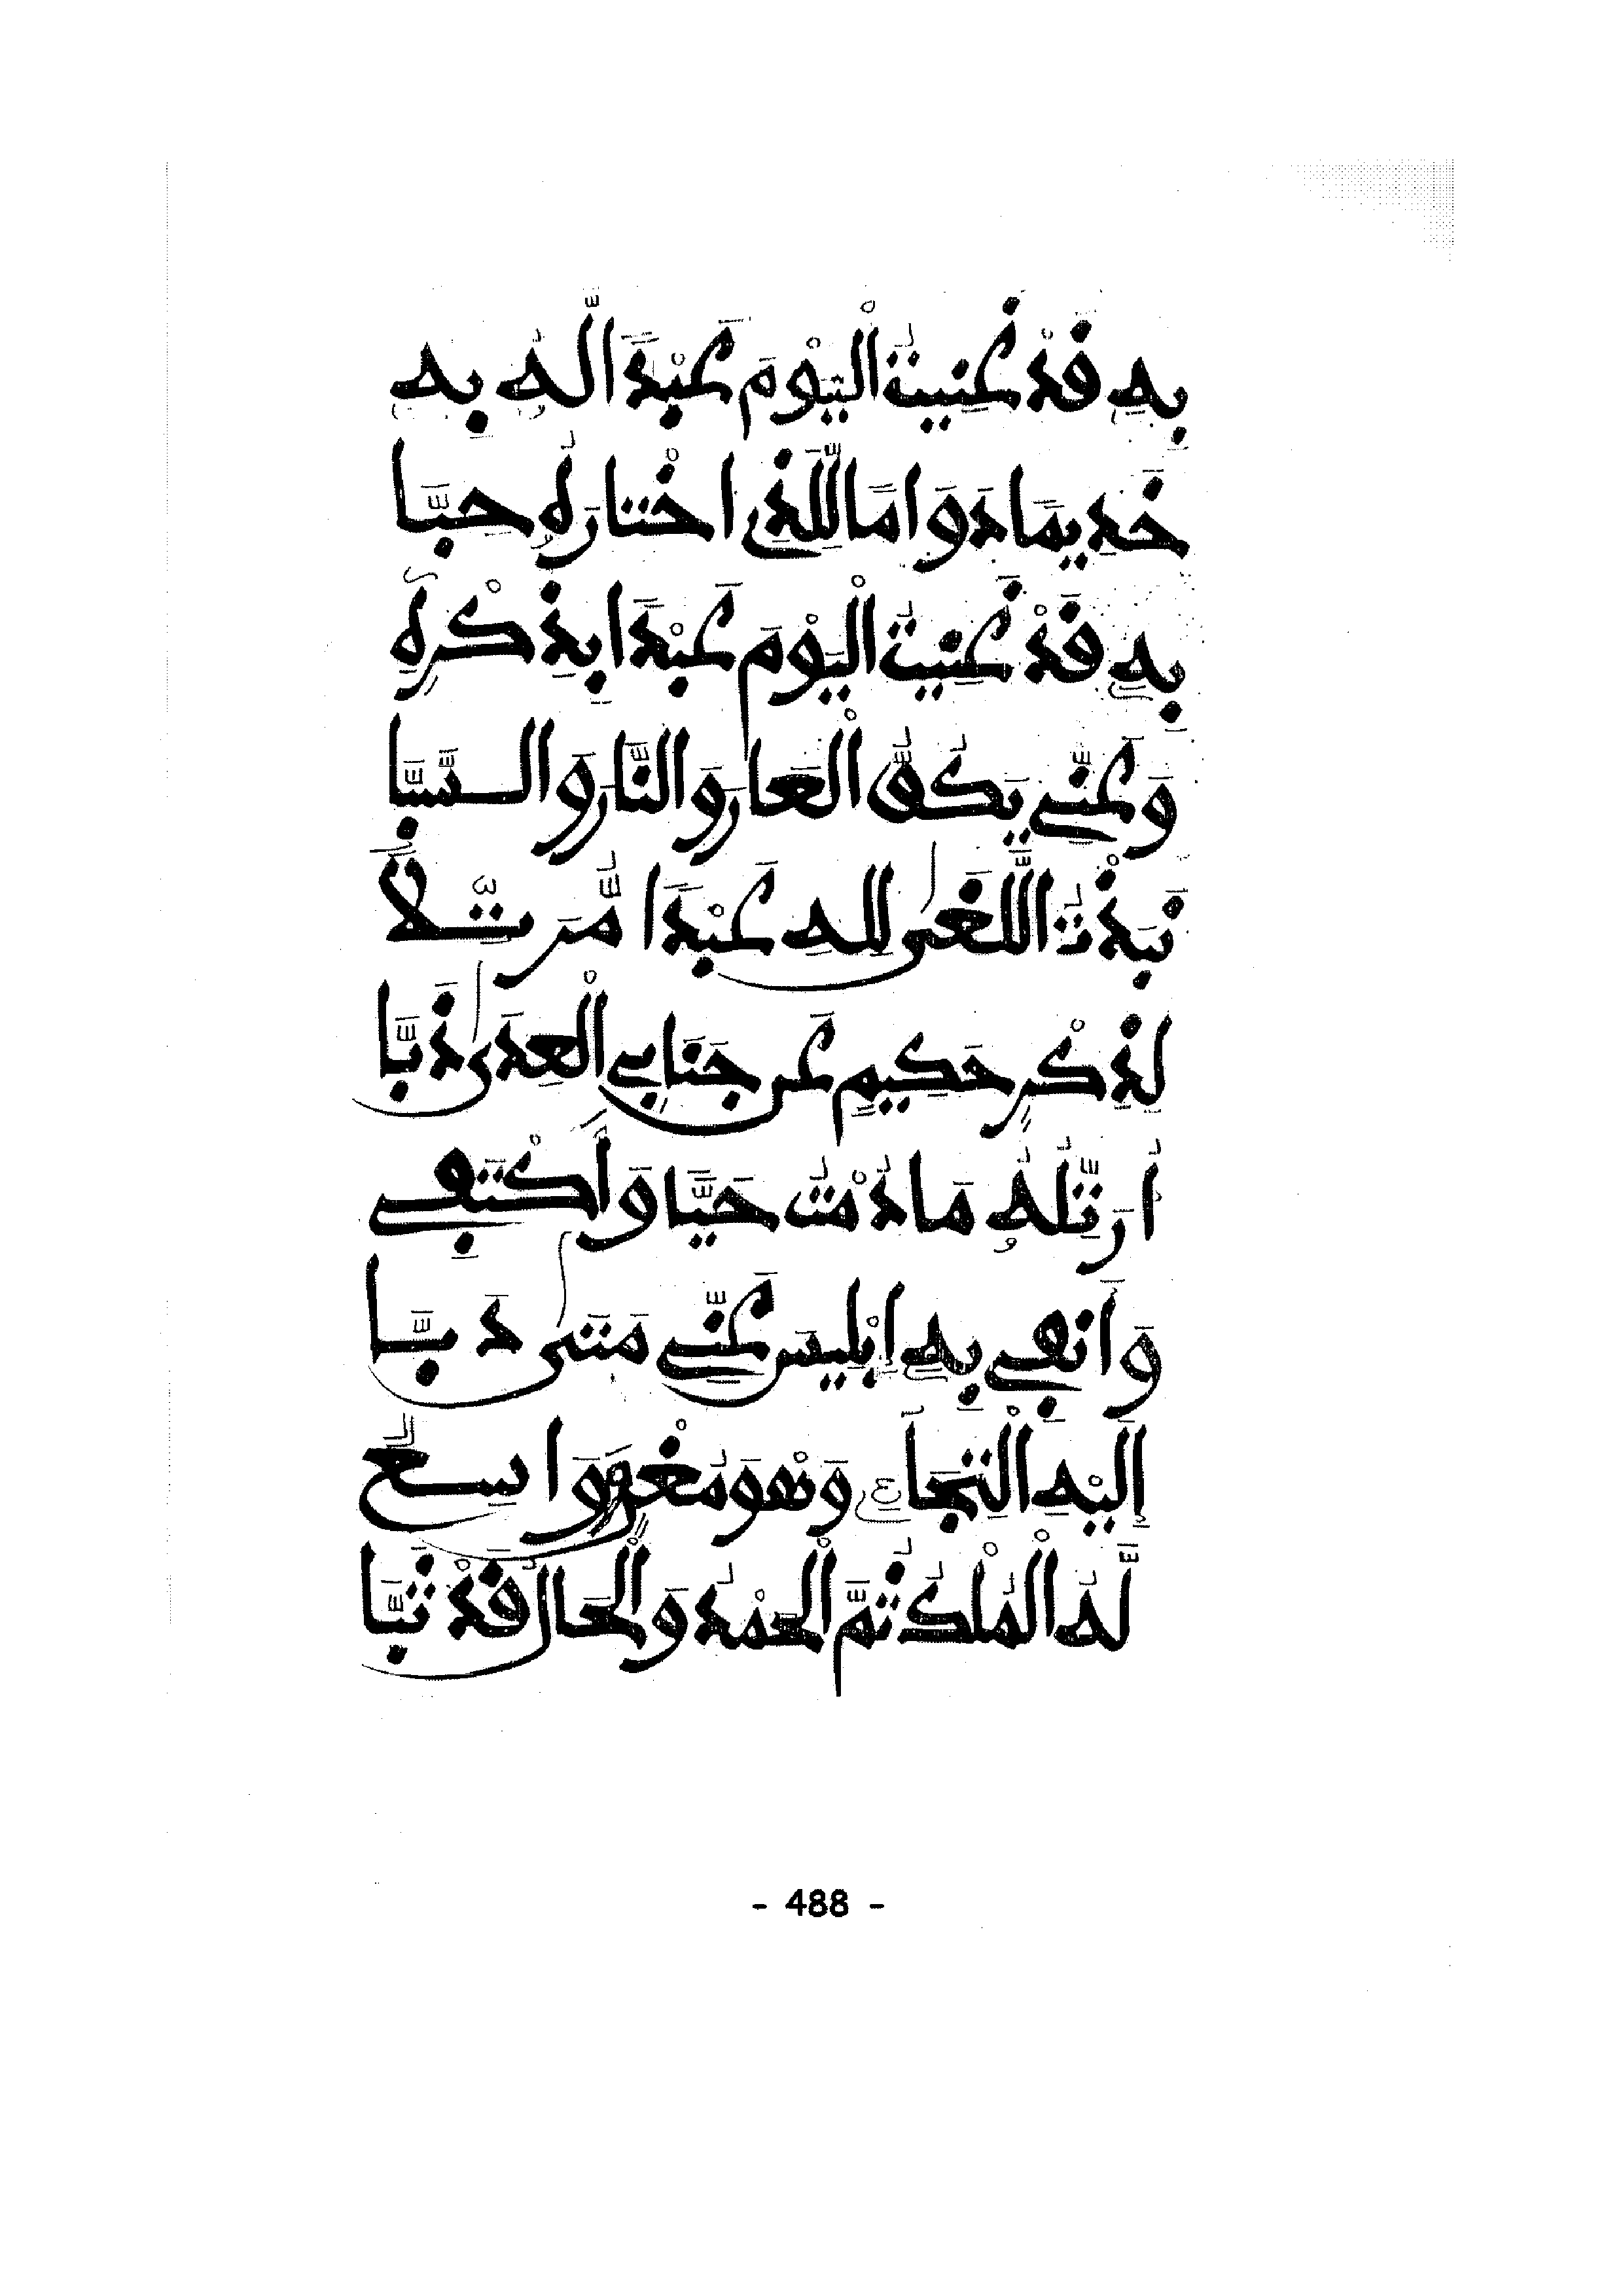 بِهِ قَدْ غَنِيتُ الْيَوْمَ عَبْدًا لَّهُ بِهِ
خَدِيمًا دَوَامًا لِلَّذِي اخْتَارَهُ حِبَّا
بِهِ قَدْ غَنِيتُ الْيَوْمَ عَبْدًا بِذِكْرِهِ
وَعَنِّي يَكُفُّ الْعَارَ وَالنَّارَ وَالسَّبَّا
نَبَذْتُ اللَّغَى لِلهِ عَبْدًا مُّرَتِّلًا
لِذِكْرٍ حَكِيمٍ عَن جَنَابِي الْعِدَى ذَبَّا
أُرَتِّلُهُ مَا دُمْتُ حَيًّا وَأَكْتَفِي
وَأَنفِي بِهِ إِبْلِيسَ عَنِّي مَتَى دَبَّا
إِلَيْهِ الْتِجَاءِي وَهْوَ مُغْنٍ وَوَاسِعٌ
لَهُ الْمُلْكُ ثُمَّ الْحَمْدُ وَالْحَالُ قَدْ ثَبَّا
- 488 -